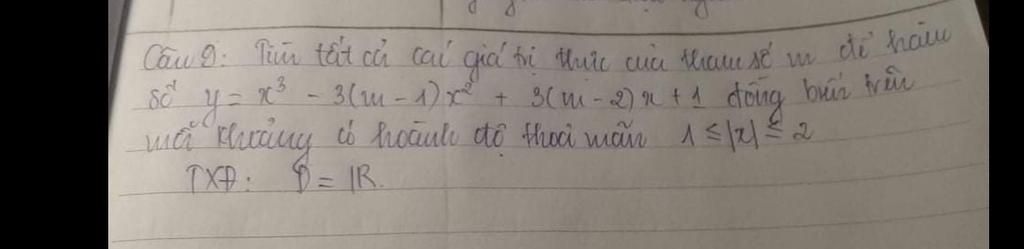 Câu 9: Tìm tất cả các giá trị thực của tham số m để hàm
số y = x³ - 3(m - 1)x² + 3(m - 2)x + 1 đồng biến trên
mỗi khoảng có hoành độ thoả mãn 1 ≤ |x| ≤ 2
TXĐ: D = ℝ.